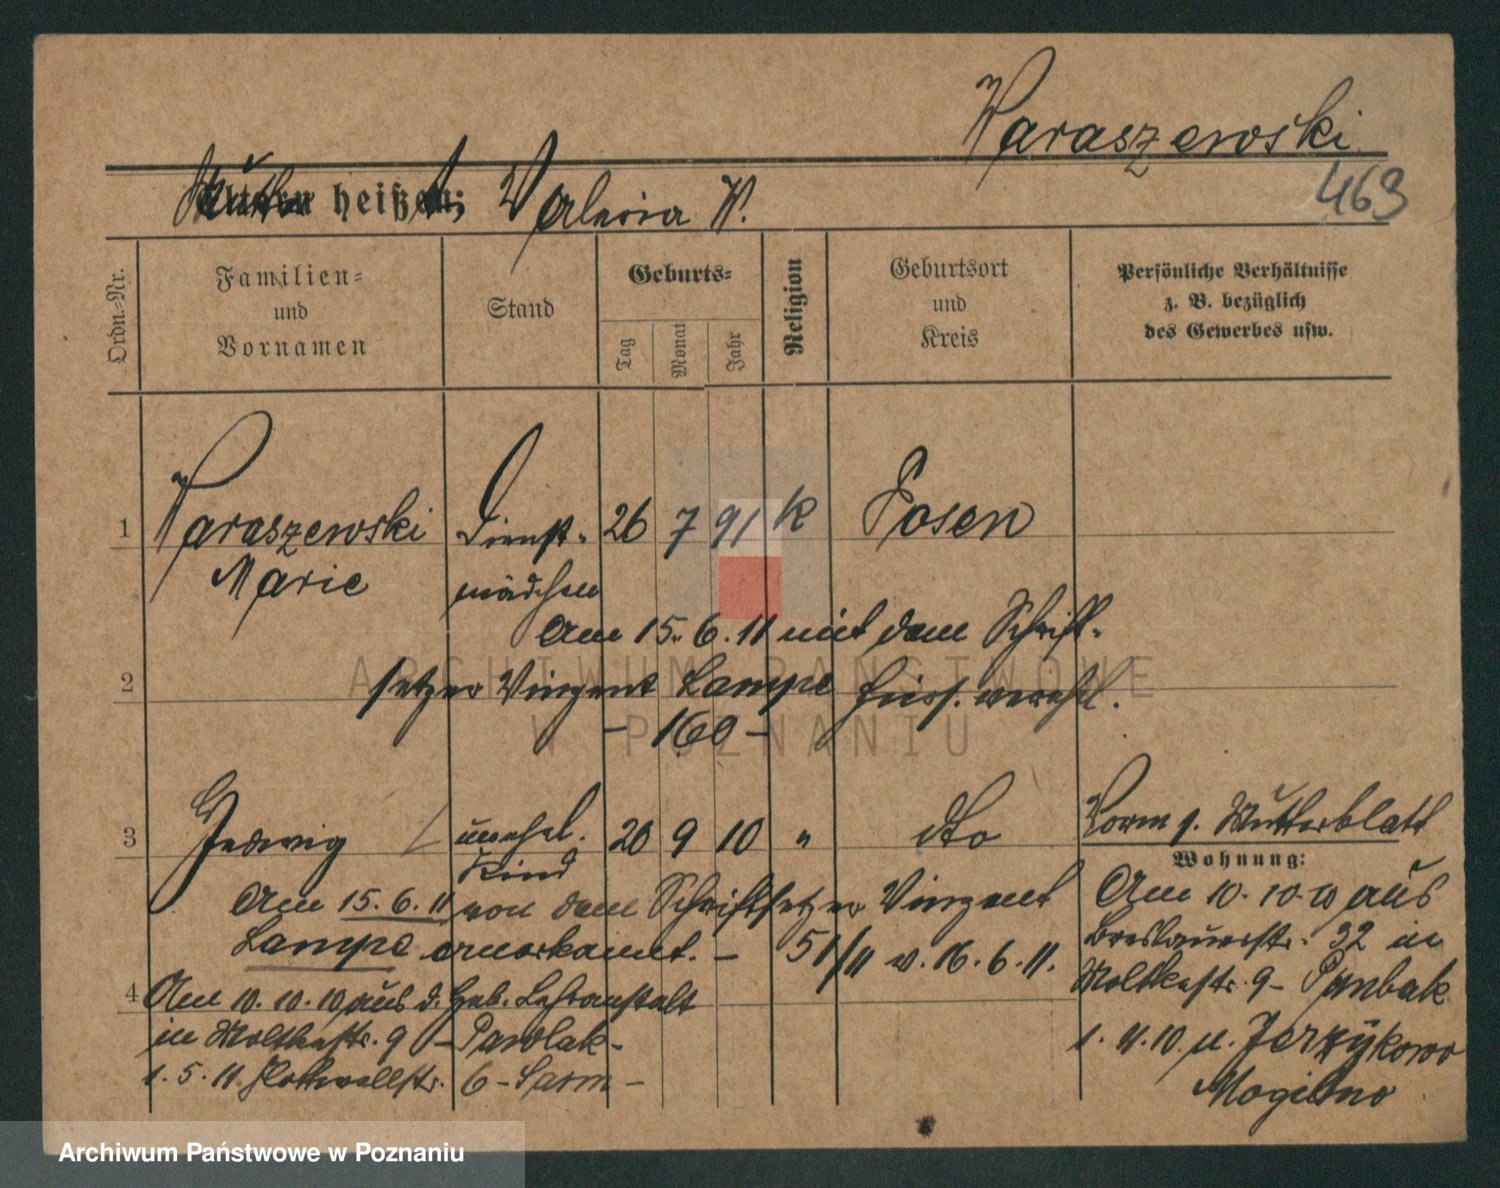 Waraszewski
463
Mutter heißt: Valeria W.
Ordn.-Nr.
Familien-
und
Vornamen
Stand
Geburts-
Tag
Monat
Jahr
Religion
Geburtsort
und
Kreis
Persönliche Verhältnisse
z. B. bezüglich
des Gewerbes usw.
1 Waraszewski Dienst- 26 7 91 k Posen
Marie mädchen
Am 15. 6. 11 mit dem Schrift-
2 setzer Vinzent Lampe hiers. vereh.
- 160 -
3 Hedwig unehel. 20 9 10 " dto
Kind
Am 15. 6. 11 von dem Schriftsetzer Vinzent
Lampe anerkannt. - 51/11 v. 16. 6. 11.
4 Am 10. 10. 10 aus d. Heb. Lehranstalt
in Moltkestr. 9 - Pawlak -
1. 5. 11. 6 - Sarm -
Vorm s. Mutterblatt
Wohnung:
Am 10. 10. 10 aus
Breslauerstr. 32 in
Moltkestr. 9 -
1. 11. 10. n. Jerzykowo
Mogilno
ARCHIWUM PAŃSTWOWE
W POZNANIU
Archiwum Państwowe w Poznaniu